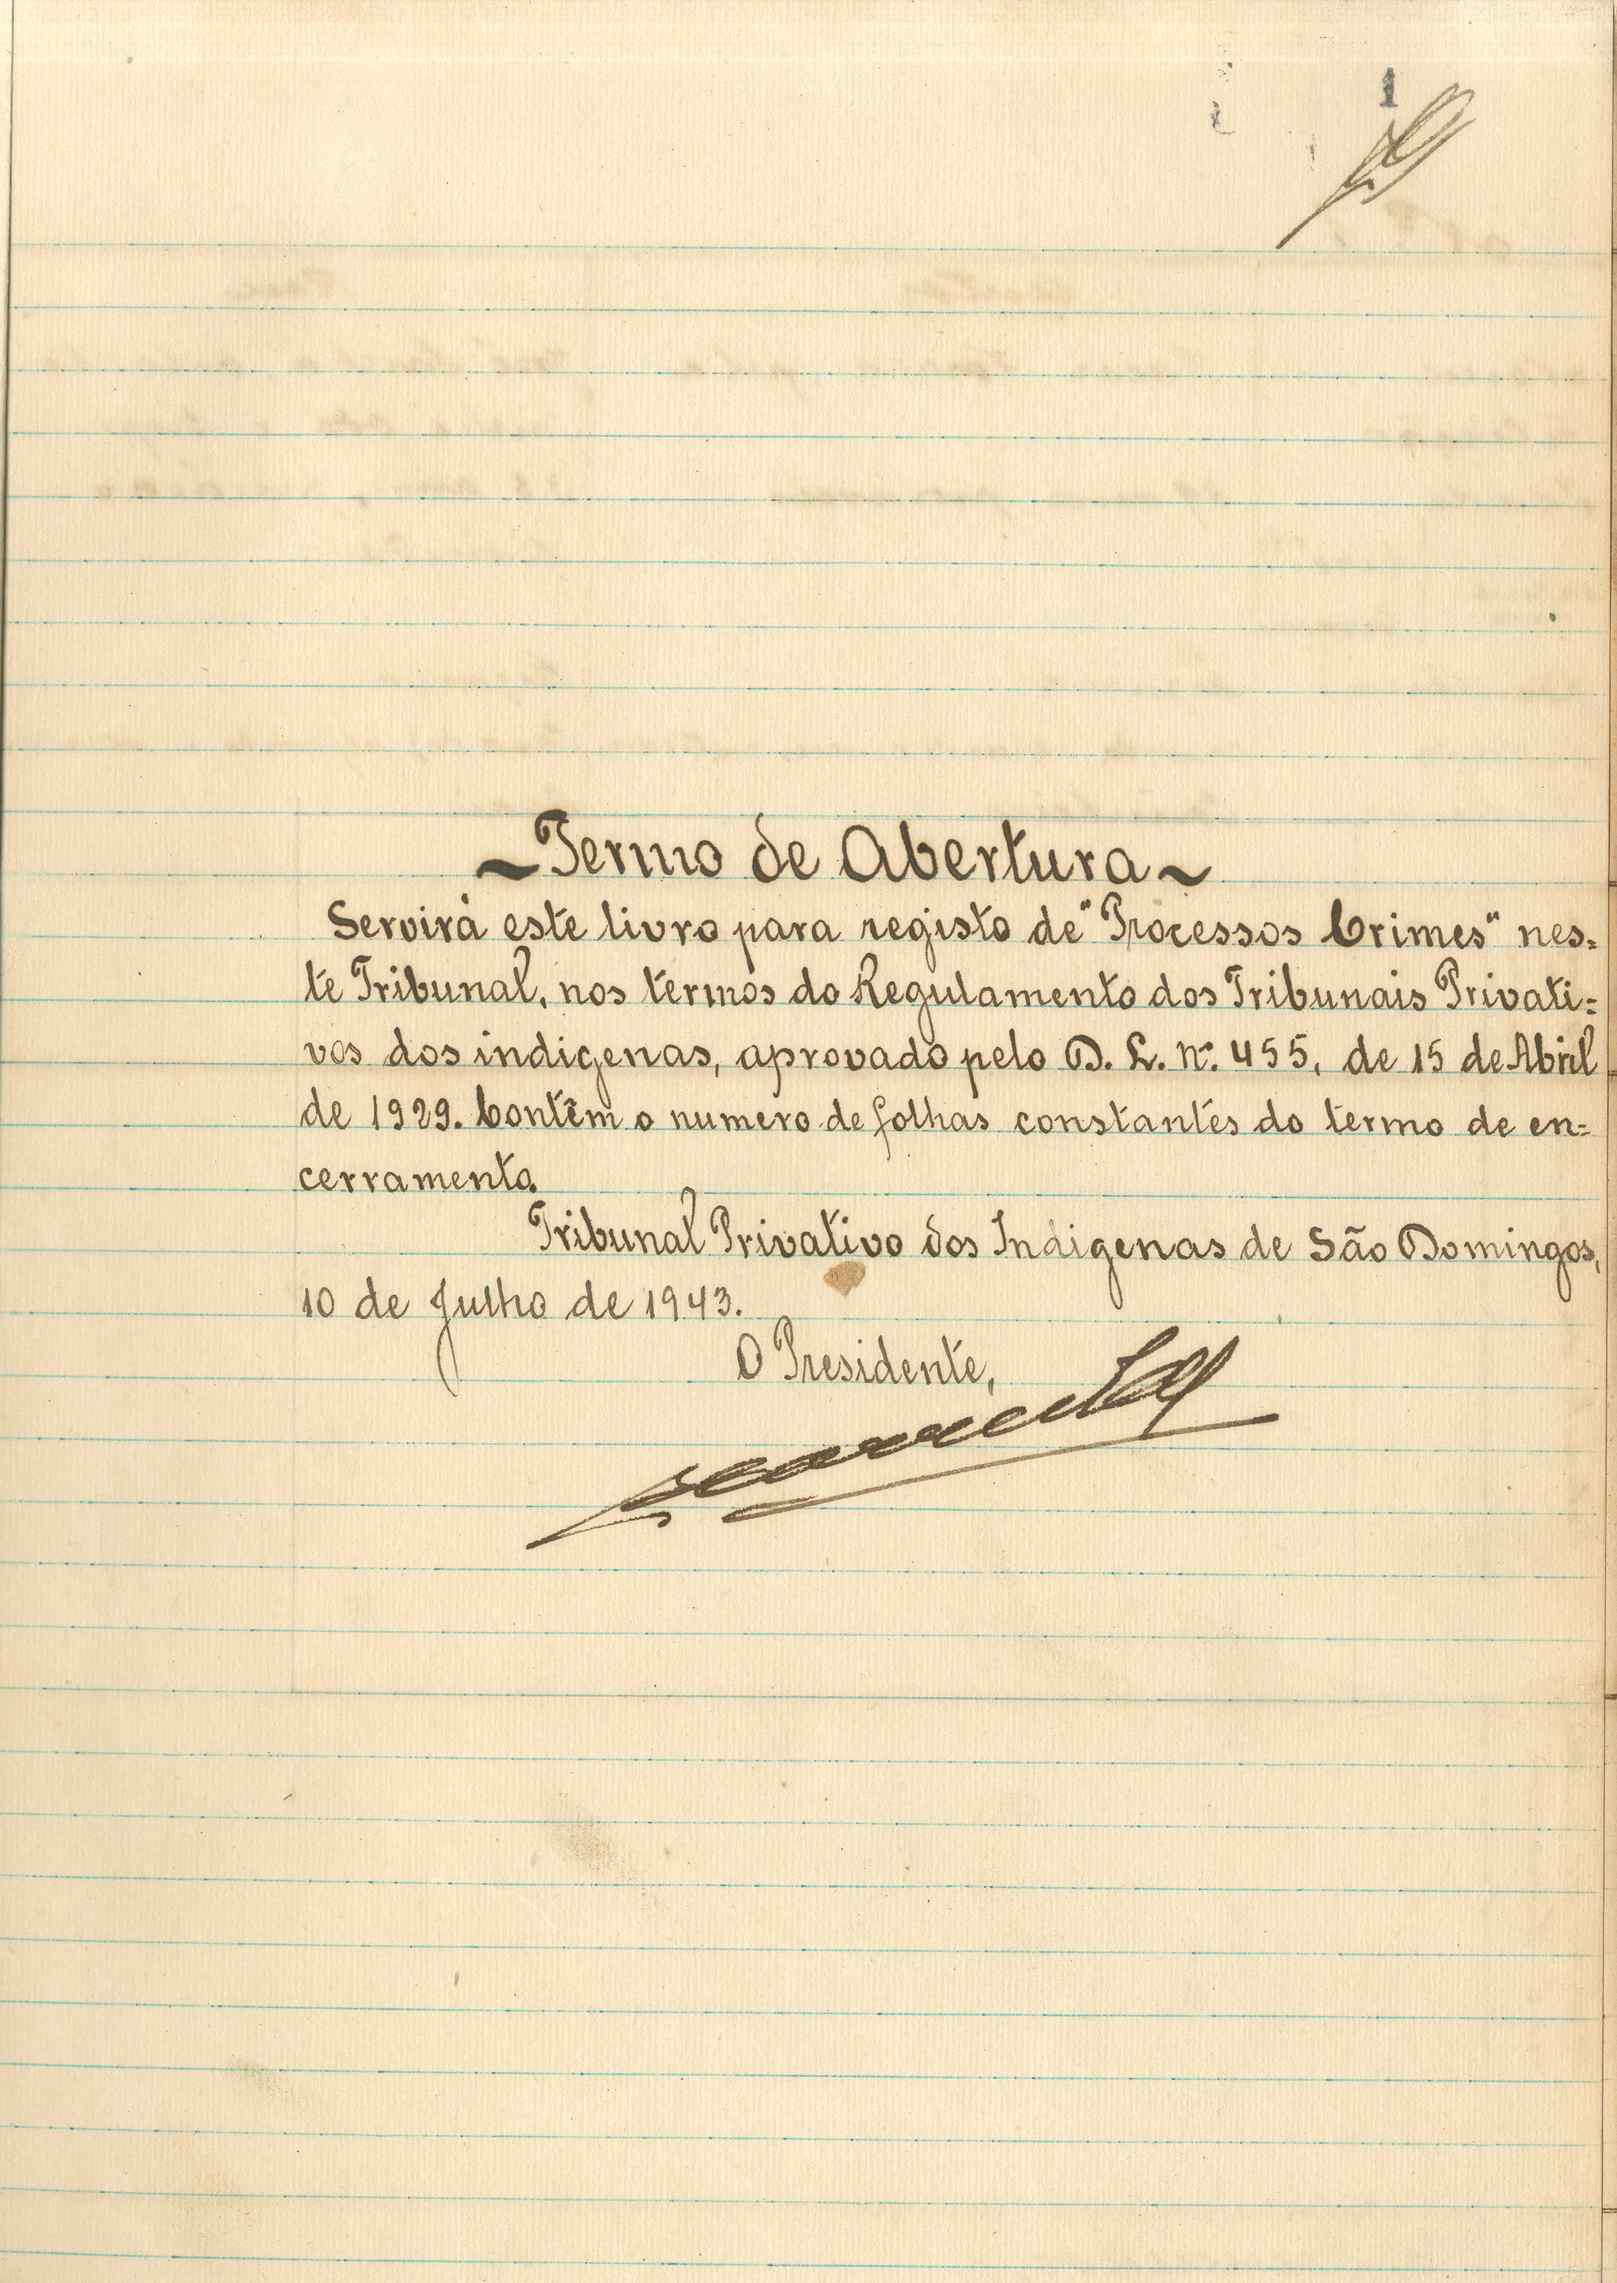 1
~Termo de Abertura~
Servirá este livro para registo de "Processos Crimes" nes=
te Tribunal, nos termos do Regulamento dos Tribunais Privati=
vos dos indigenas, aprovado pelo D. L. nº. 455, de 15 de Abril
de 1929. Contêm o numero de folhas constantes do termo de en=
cerramento.
Tribunal Privativo dos Indigenas de São Domingos,
10 de Julho de 1943.
O Presidente,